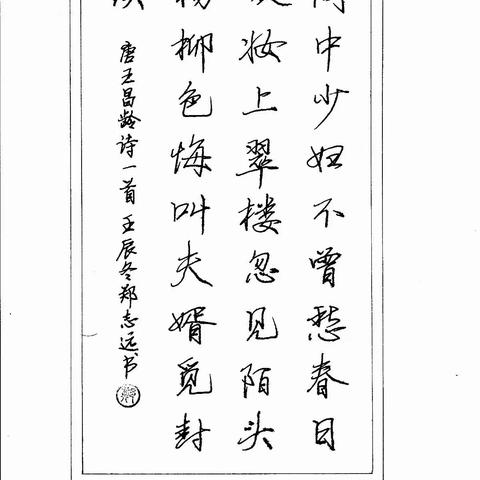 中少妇不曾愁春日
妆上翠楼忽见陌头
杨柳色悔叫夫婿觅封
唐王昌龄诗一首 壬辰冬郑志远书